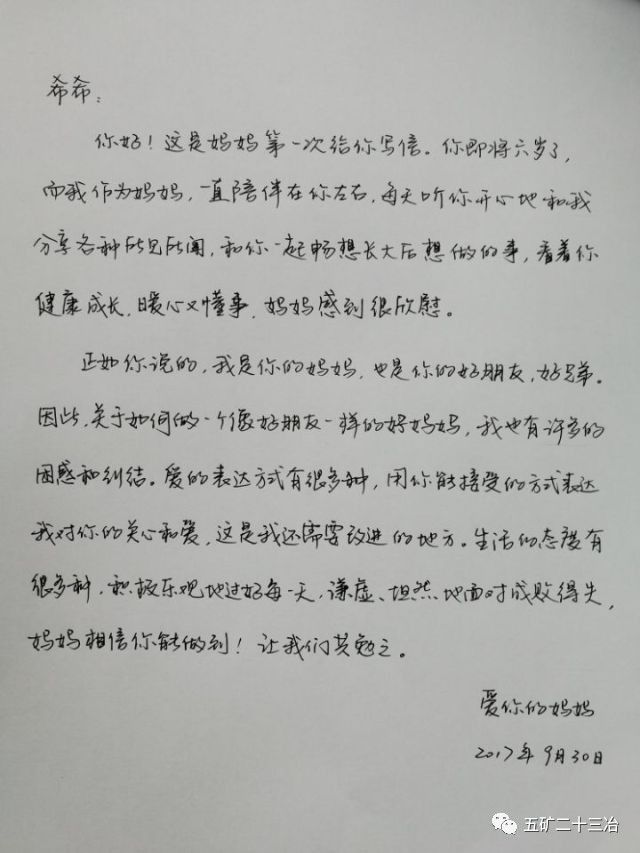 希希：
你好！这是妈妈第一次给你写信。你即将六岁了，
而我作为妈妈，一直陪伴在你左右，每天听你开心地和我
分享各种所见所闻，和你一起畅想长大后想做的事，看着你
健康成长，暖心又懂事，妈妈感到很欣慰。
正如你说的，我是你的妈妈，也是你的好朋友，好兄弟。
因此，关于如何做一个像好朋友一样的好妈妈，我也有许多的
困惑和纠结。爱的表达方式有很多种，用你能接受的方式表达
我对你的关心和爱，这是我还需要改进的地方。生活的态度有
很多种，积极乐观地过好每一天，谦虚、坦然地面对成败得失，
妈妈相信你能做到！让我们共勉之。
爱你的妈妈
2017年9月30日
五矿二十三冶